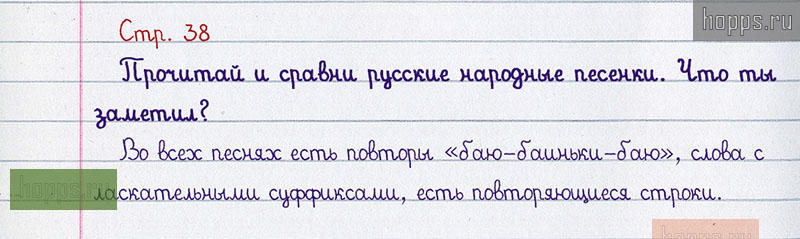 hopps.ru
Стр. 38
Прочитай и сравни русские народные песенки. Что ты
заметил?
Во всех песнях есть повторы «баю-баиньки-баю», слова с
hopps.ru
ласкательными суффиксами, есть повторяющиеся строки.
hopps.ru